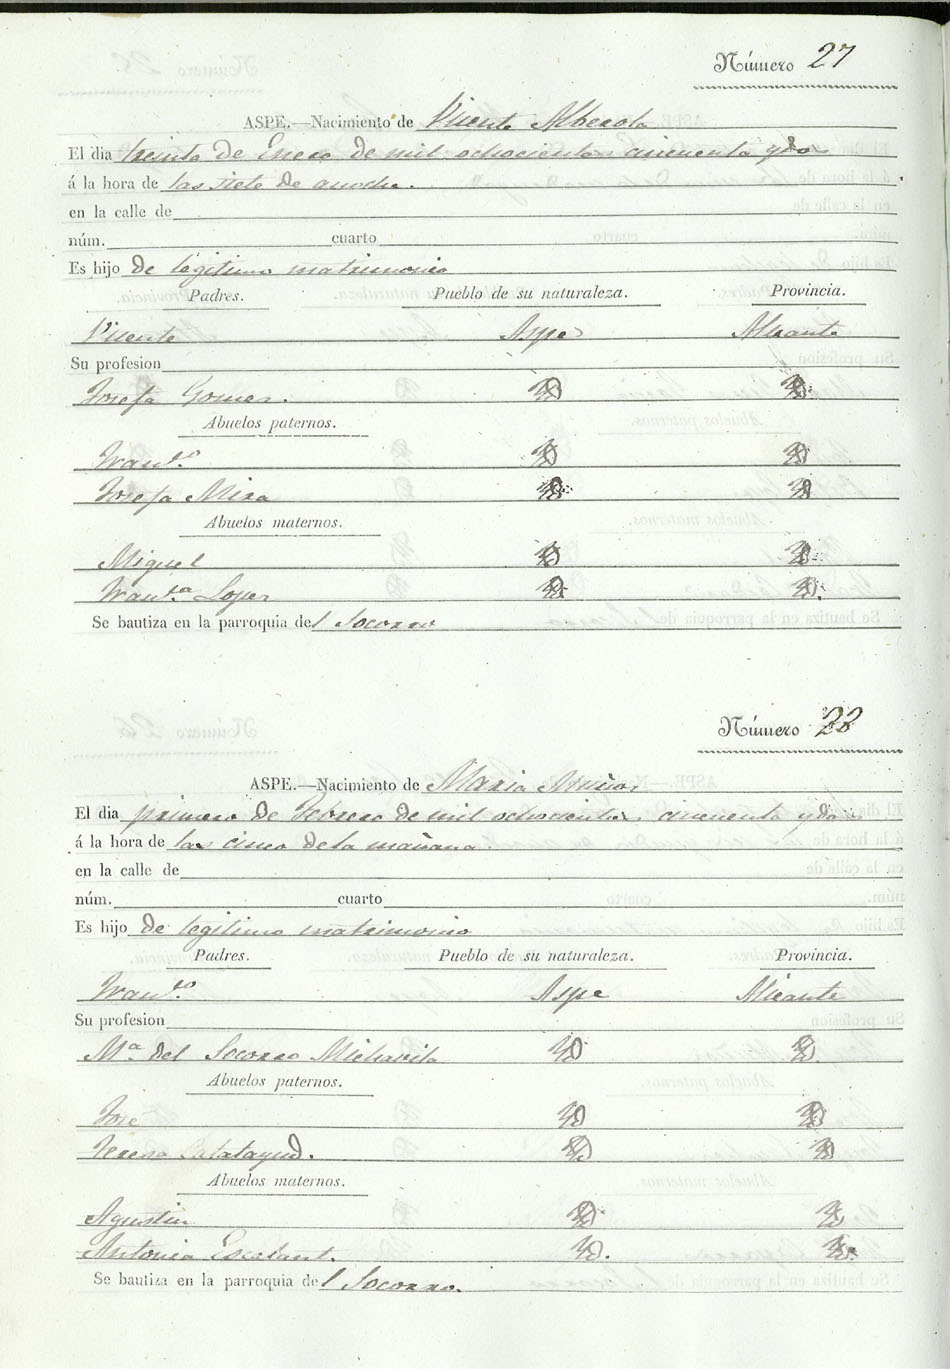 Número 27
ASPE.—Nacimiento de Vicente Alberola
El dia treinta de Enero de mil ochocientos cincuenta y dos
á la hora de las siete de anoche.
en la calle de
núm. cuarto
Es hijo de legitimo matrimonio
Padres. Pueblo de su naturaleza. Provincia.
Vicente Aspe Alicante
Su profesion
Josefa Gomez. Yd Yd
Abuelos paternos.
Franco. Yd Yd
Josefa Mira Yd Yd
Abuelos maternos.
Miguel Yd Yd
Franca. Lopez Yd Yd.
Se bautiza en la parroquia del Socorro
Número 28
ASPE.—Nacimiento de Maria Muñoz
El dia primero de Febrero de mil ochocientos cincuenta y dos
á la hora de las cinco de la mañana.
en la calle de
núm. cuarto
Es hijo de legitimo matrimonio
Padres. Pueblo de su naturaleza. Provincia.
Franco. Aspe Alicante
Su profesion
Ma del Socorro Michavila Yd Yd.
Abuelos paternos.
José Yd Yd
Teresa Calatayud. Yd. Yd
Abuelos maternos.
Agustin Yd Yd
Antonia Escolant. Yd. Yd.
Se bautiza en la parroquia del Socorro.